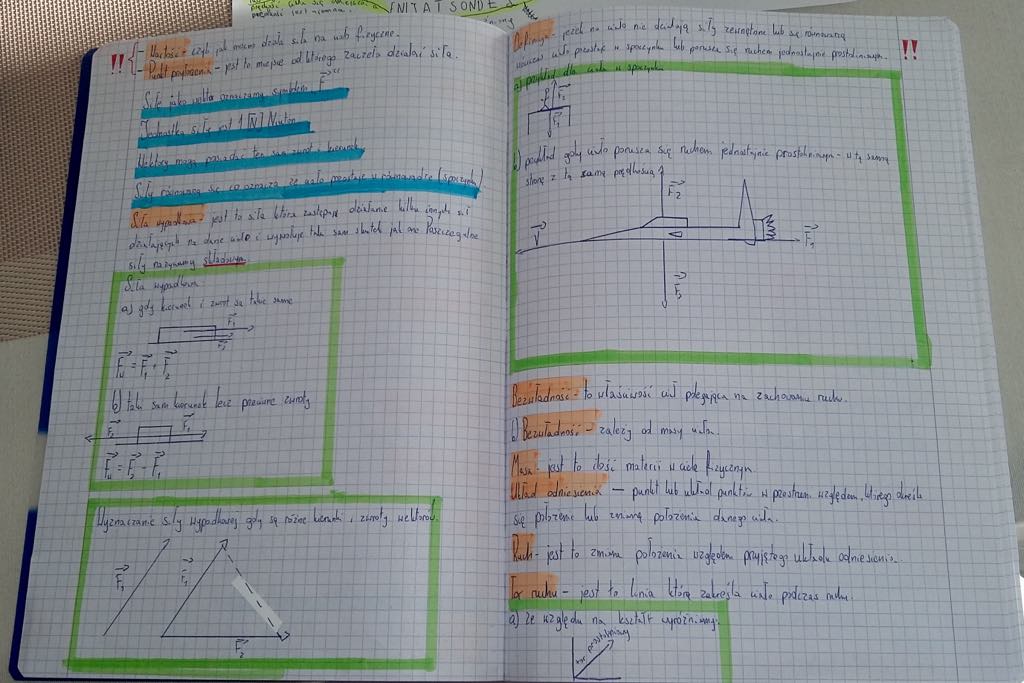 NITATSONDE
- Wartość - czyli jak mocno działa siła na ciało fizyczne.
- Punkt przyłożenia - jest to miejsce od którego zaczęto działać siłą.
Siłę jako wektor oznaczamy symbolem "F"
Jednostką siły jest 1 [N] Niuton
Wektory mogą posiadać ten sam zwrot i kierunek
Siły równoważą się co oznacza że ciało pozostaje w równowadze (spoczynku)
Siła wypadkowa - jest to siła która zastępuje działanie kilku innych sił
działających na dane ciało i wywołuje taki sam skutek jak one. Poszczególne
siły nazywamy składowym
Siła wypadkowa
a) gdy kierunek i zwrot są takie same
F1
F2
Fw = F1 + F2
b) taki sam kierunek lecz przeciwne zwroty
F2 F1
Fw = F2 - F1
Wyznaczanie siły wypadkowej gdy są różne kierunki i zwroty wektorów.
F1 F1
F2
Definicja - jeżeli na ciało nie działają siły zewnętrzne lub się równoważą
wówczas ciało pozostaje w spoczynku lub porusza się ruchem jednostajnie prostoliniowym.
a) przykład dla ciała w spoczynku
F2
F1
b) przykład gdy ciało porusza się ruchem jednostajnie prostoliniowym - w tą samą
stronę z tą samą prędkością
F2
V F1
F3
Bezwładność - to właściwość ciał polegająca na zachowaniu ruchu.
Bezwładność - zależy od masy ciała.
Masa - jest to ilość materii w ciele fizycznym.
Układ odniesienia - punkt lub układ punktów w przestrzeni względem którego określa
się położenie lub zmianę położenia danego ciała.
Ruch - jest to zmiana położenia względem przyjętego układu odniesienia.
Tor ruchu - jest to linia którą zakreśla ciało podczas ruchu.
a) Ze względu na kształt wyróżniamy:
tor prostoliniowy